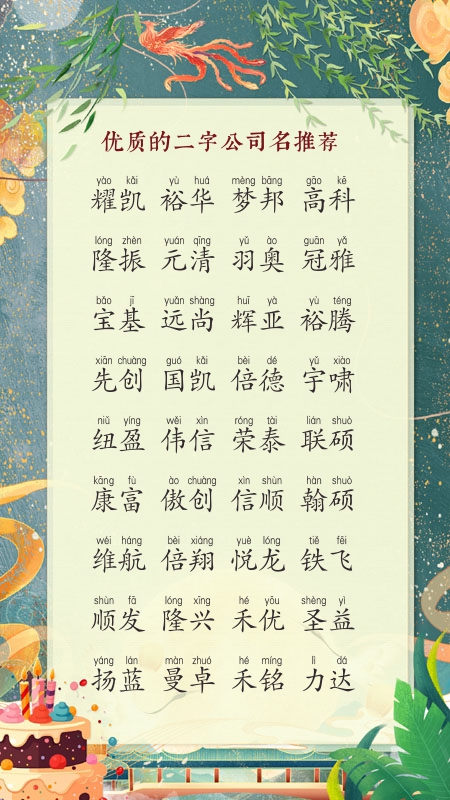 优质的二字公司名推荐
yào kǎi yù huá mèng bāng gāo kē
耀凯 裕华 梦邦 高科
lóng zhèn yuán qīng yǔ ào guān yǎ
隆振 元清 羽奥 冠雅
bǎo jī yuǎn shàng huī yà yù téng
宝基 远尚 辉亚 裕腾
xiān chuàng guó kǎi bèi dé yǔ xiào
先创 国凯 倍德 宇啸
niǔ yíng wěi xìn róng tài lián shuò
纽盈 伟信 荣泰 联硕
kāng fù ào chuàng xìn shùn hàn shuò
康富 傲创 信顺 翰硕
wéi háng bèi xiáng yuè lóng tiě fēi
维航 倍翔 悦龙 铁飞
shùn fā lóng xīng hé yōu shèng yì
顺发 隆兴 禾优 圣益
yáng lán màn zhuó hé míng lì dá
扬蓝 曼卓 禾铭 力达